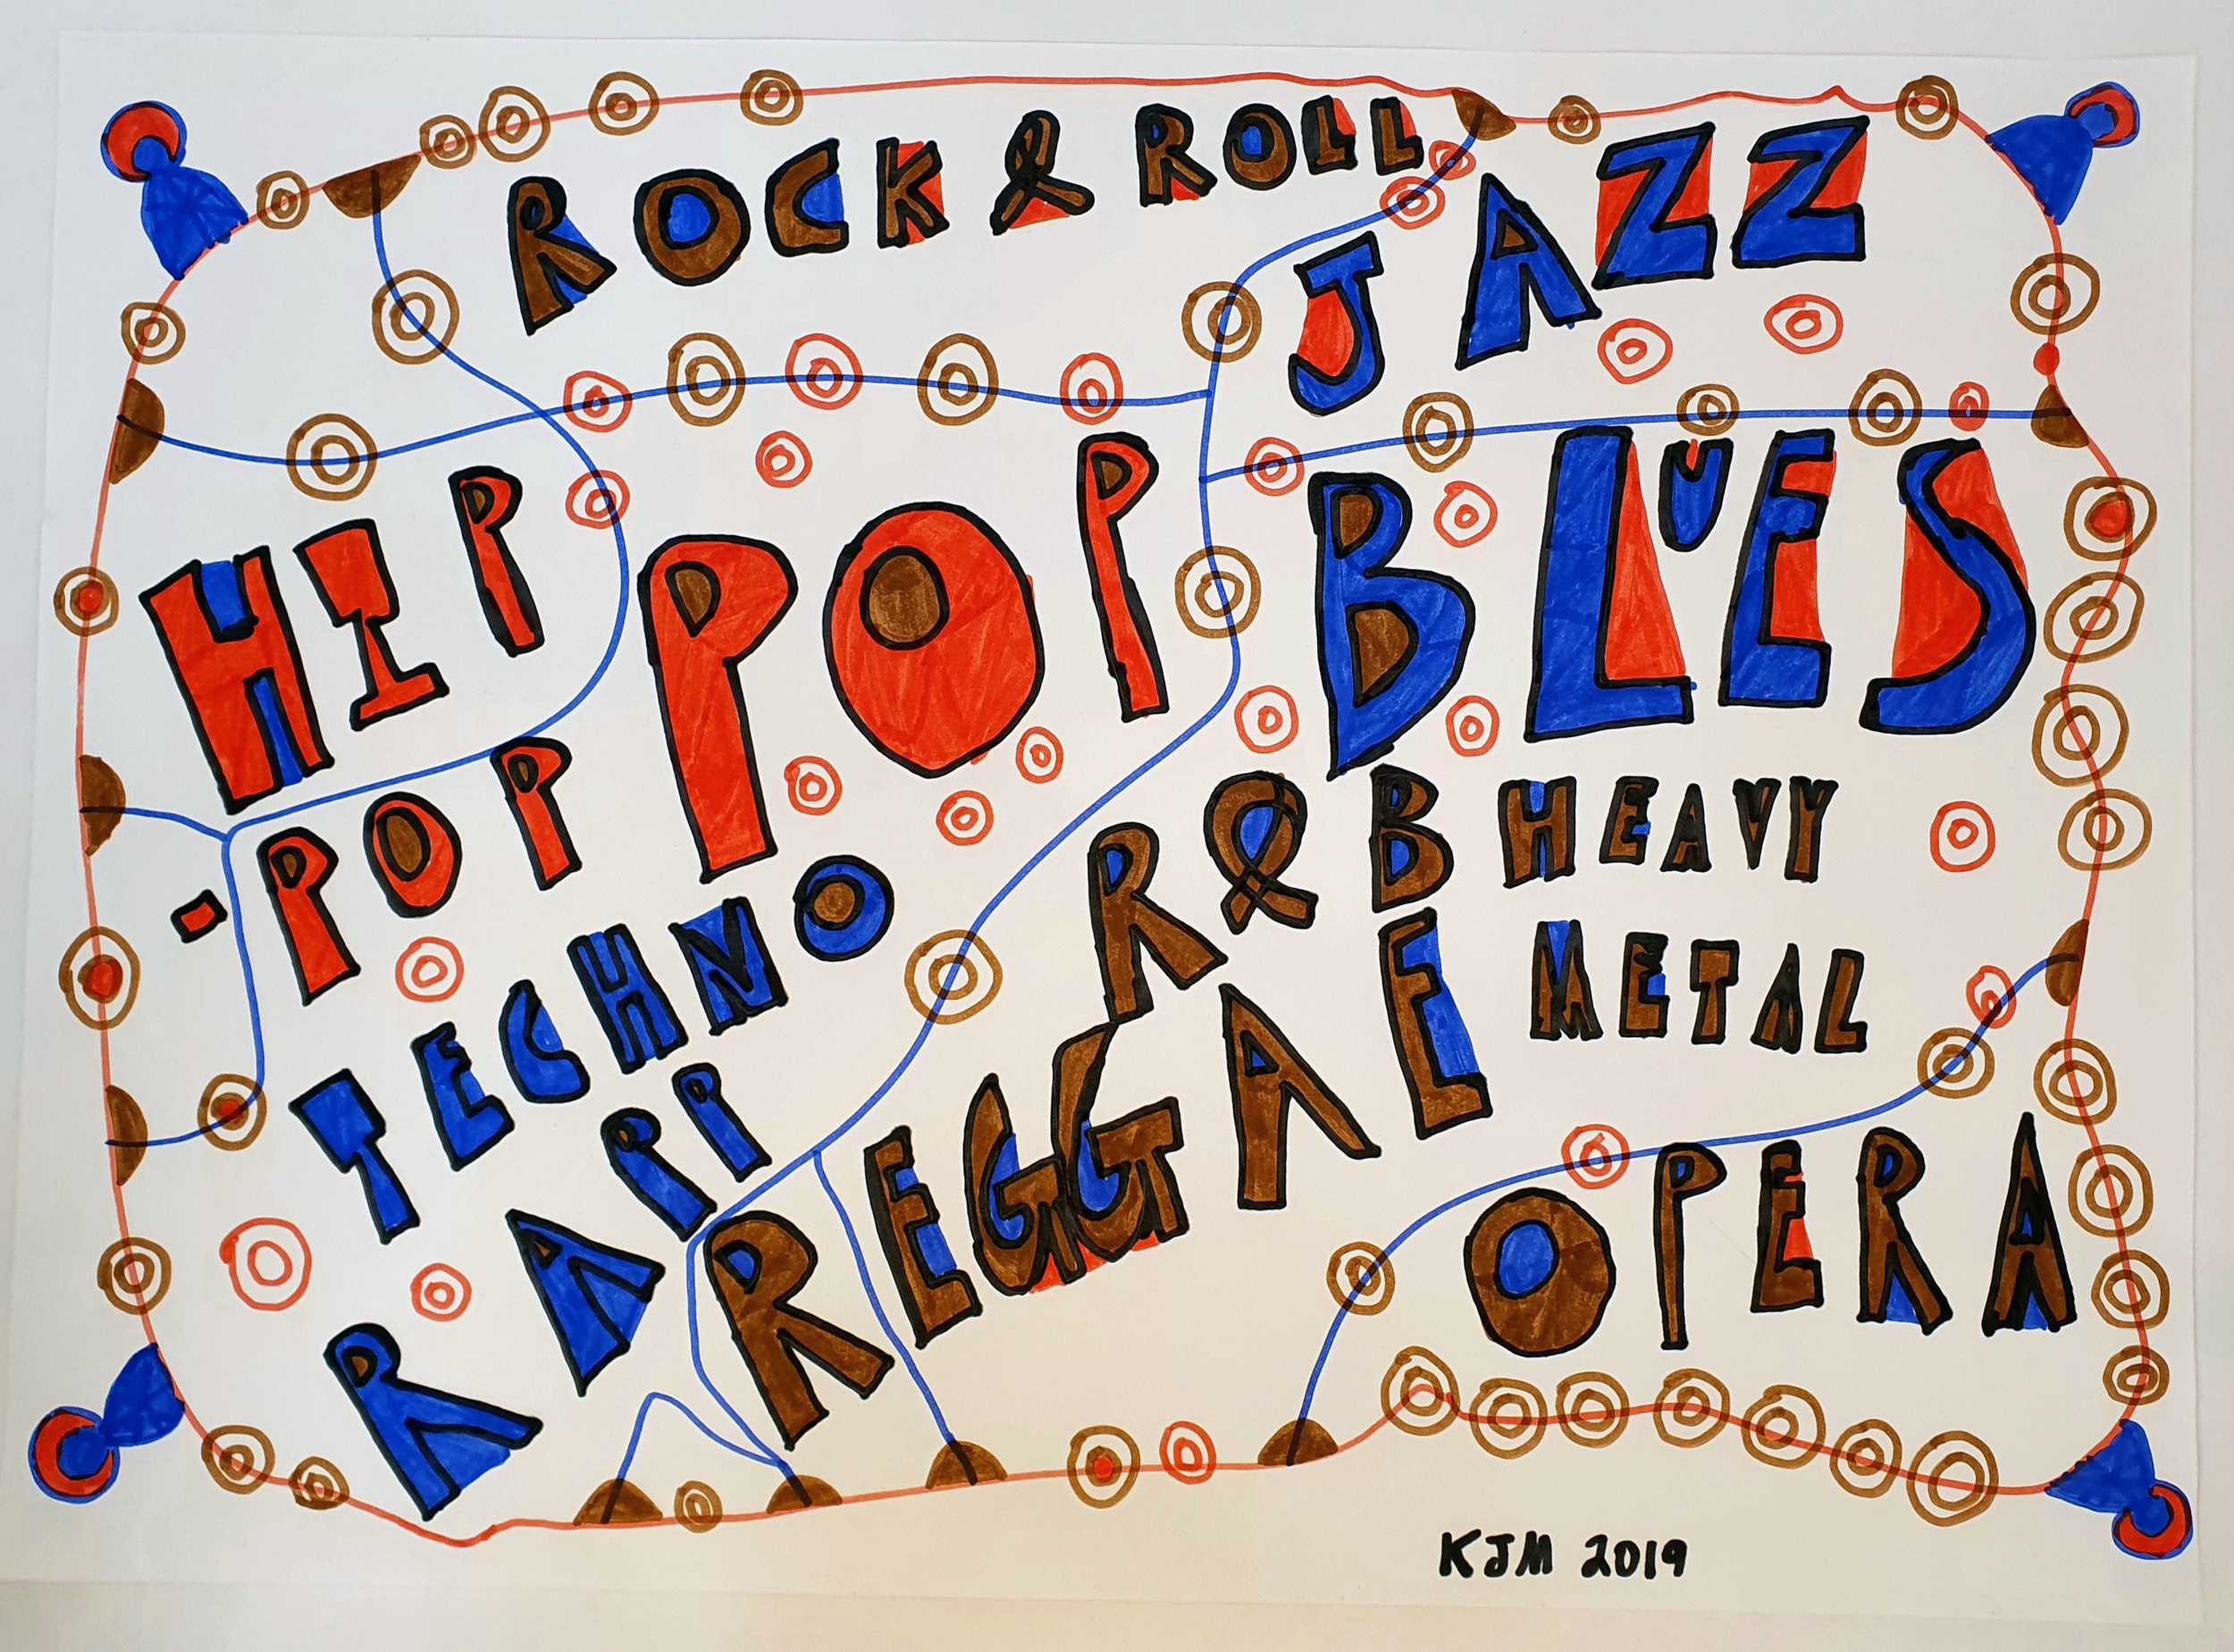 ROCK & ROLL
JAZZ
HIP
-POP
POP
BLUES
TECHNO
R&B
HEAVY
METAL
RAPP
REGGAE
OPERA
KJM 2019